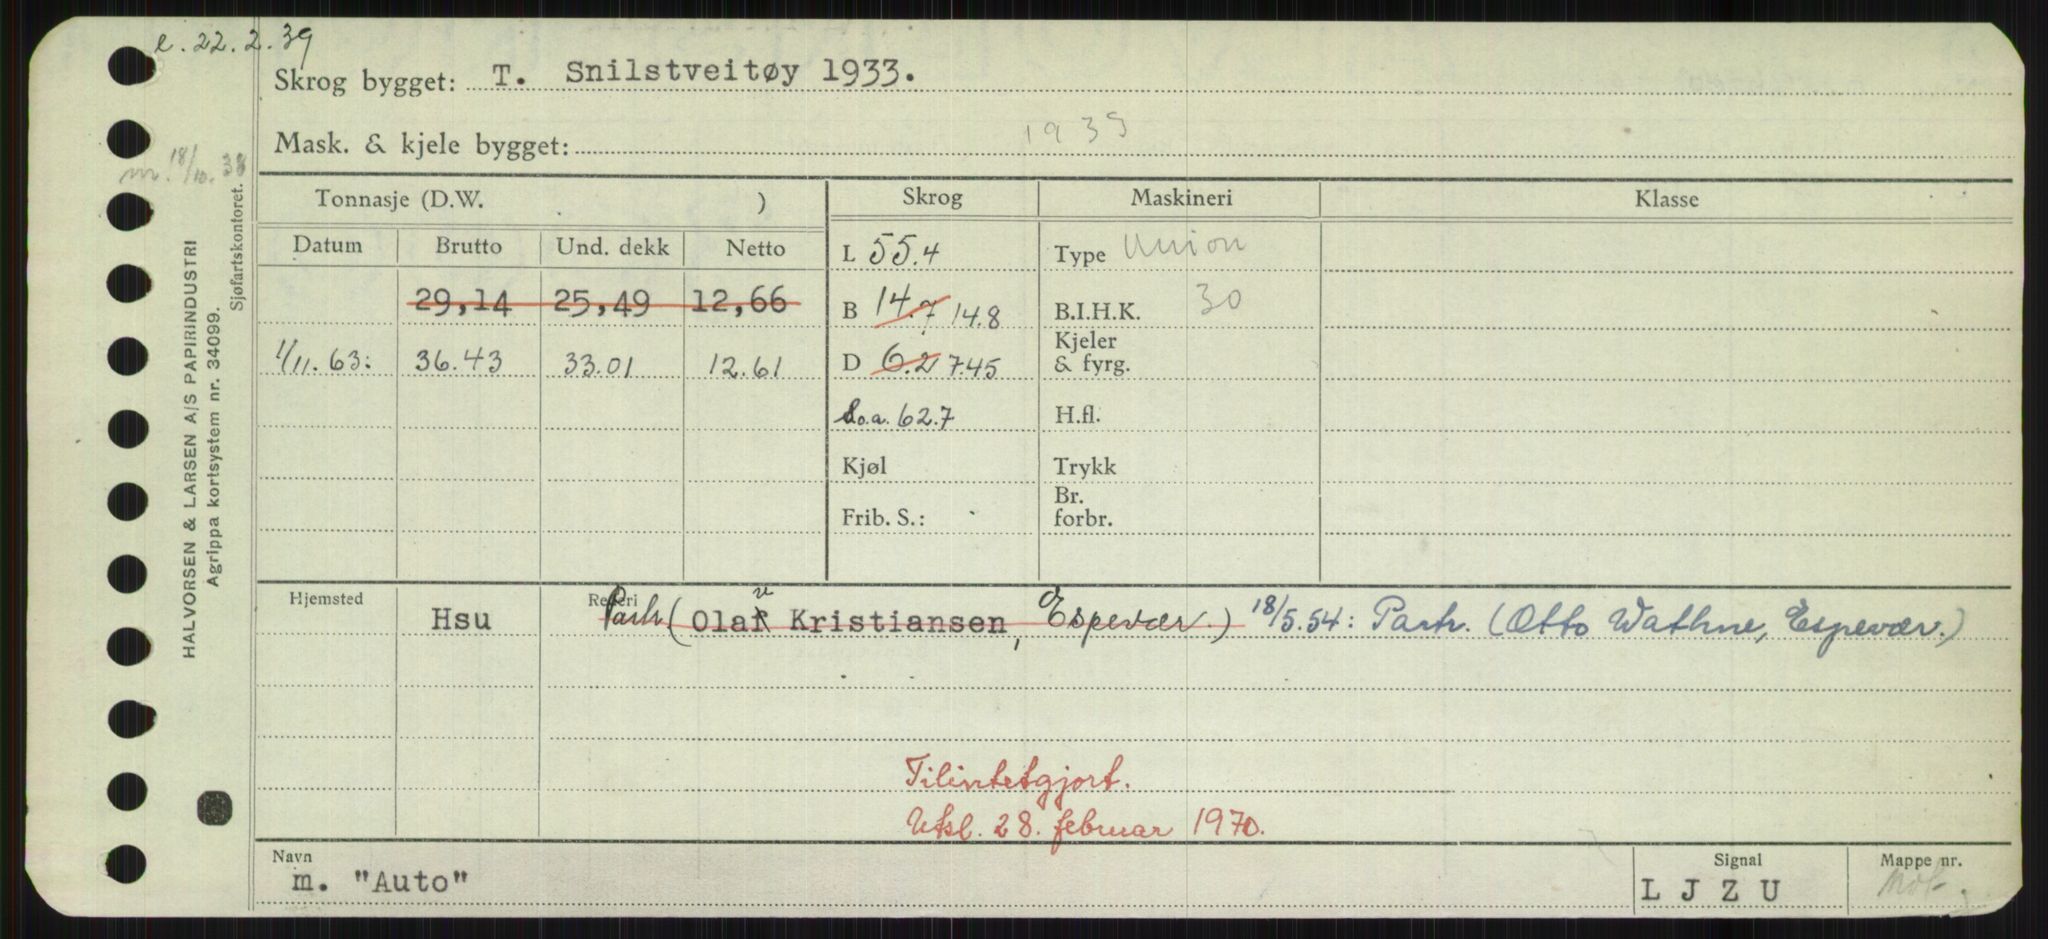 e. 22.2.39
Skrog bygget: T. Snilstveitøy 1933.
Mask. & kjele bygget: 1935
m. 18/10. 38
HALVORSEN & LARSEN A/S PAPIRINDUSTRI
Agrippa kortsystem nr. 34099.
Sjøfartskontoret.
Tonnasje (D.W. ) Skrog Maskineri Klasse
Datum Brutto Und. dekk Netto
L 55.4 Type Union
29,14 25,49 12,66 B 14.7 14.8 B.I.H.K. 30
1/11.63: 36.43 33.01 12.61 D 6.2 7.45 Kjeler & fyrg.
L.o.a. 62.7 H.fl.
Kjøl Trykk
Frib. S.: Br. forbr.
Hjemsted Rederi
Hsu Partr. (Olav Kristiansen, Espevær.) 18/5.54: Partr. (Otto Wathne, Espevær.)
Tilintetgjort.
Utsl. 28. februar 1970.
Navn Signal Mappe nr.
m. "Auto" L J Z U Mot.